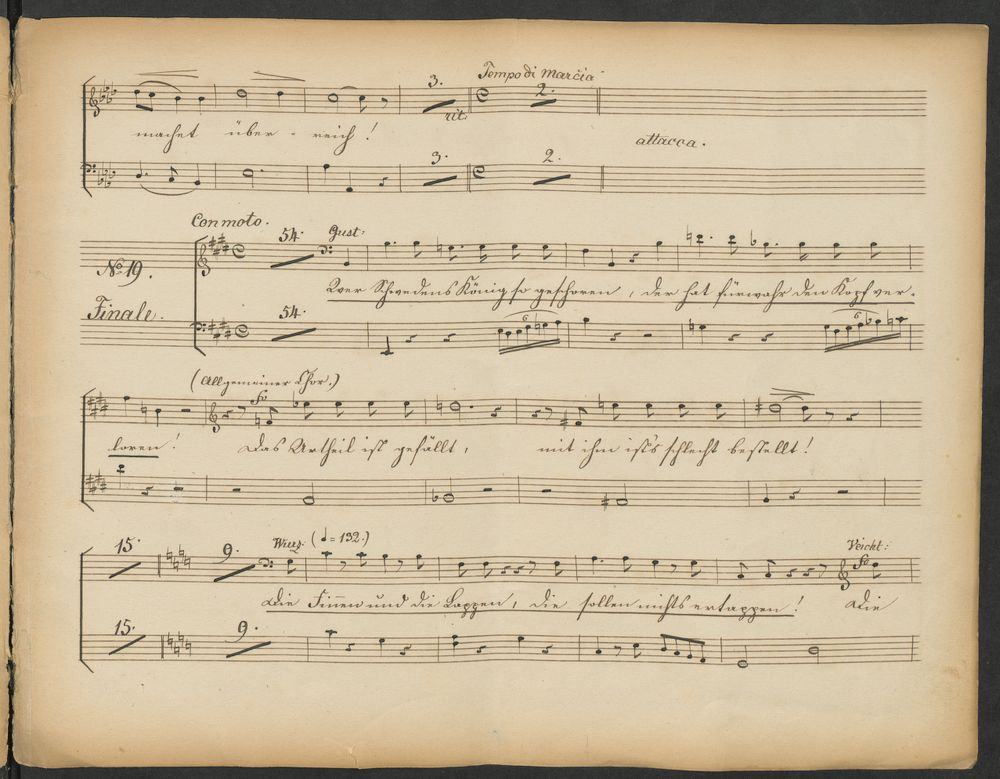 3. Tempo di marcia 2.
rit.
machet über - reich !
attacca.
3. 2.
Con moto.
54. Gust:
No 19.
Wer Schwedens König so geschoren , der hat fürwahr den Kopf ver-
Finale.
54.
6 6
(Allgemeiner Chor.)
fo
loren ! Das Urtheil ist gefällt , mit ihm ist's schlecht bestellt !
15. 9. (♩ = 132.) Veicht:
fo
Die Finnen und die Lappen , die sollen nichts ertappen ! Die
15. 9.